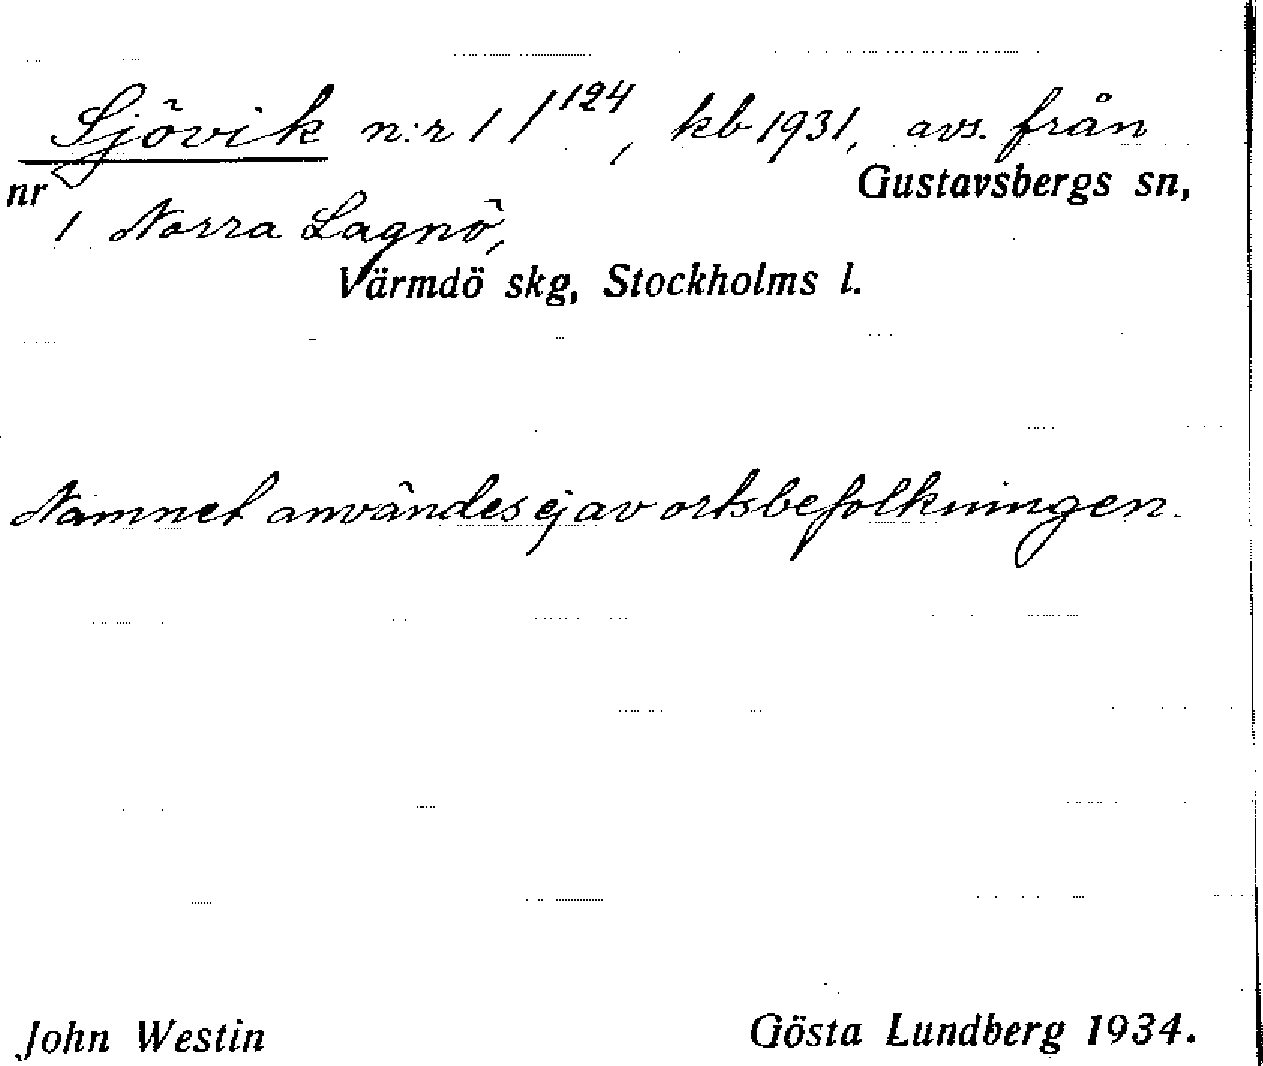 Sjövik n:r 1/124, kb 1931, avs. från
nr 1 Norra Lagnö, Gustavsbergs sn,
Värmdö skg, Stockholms l.
Namnet användes ej av ortsbefolkningen.
John Westin Gösta Lundberg 1934.